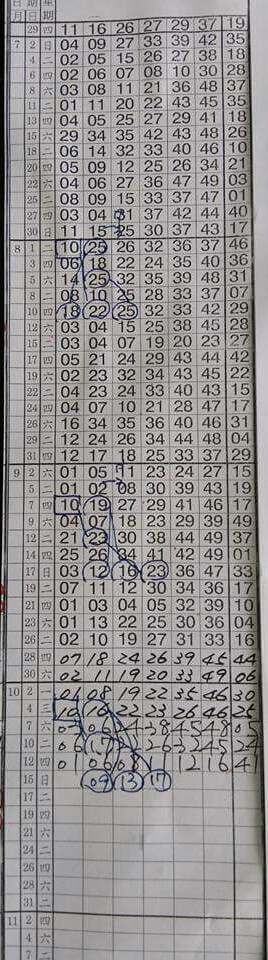 日 期 星期
月
29 四 11 16 26 27 29 37 19
7 2 日 04 09 27 33 39 42 35
4 二 02 05 15 26 27 38 18
6 四 02 06 07 08 10 30 28
8 六 03 08 11 21 36 48 37
11 二 01 11 20 22 43 45 35
13 四 04 05 25 27 29 41 18
15 六 29 34 35 42 43 48 26
18 二 06 14 32 33 40 46 10
20 四 05 09 12 25 26 34 21
22 六 04 06 27 36 47 49 03
25 二 08 09 15 33 37 47 01
27 四 03 04 31 37 42 44 40
30 日 11 15 25 30 37 43 17
8 1 二 10 25 26 32 36 37 46
3 四 06 18 22 24 35 40 36
5 六 14 25 32 35 39 48 31
8 二 08 10 25 28 33 37 07
10 四 18 22 25 32 33 42 29
12 六 03 04 15 25 38 45 28
15 二 03 04 07 19 20 23 27
17 四 05 21 24 29 43 44 42
19 六 22 23 32 34 43 45 22
22 二 04 23 24 33 40 43 15
24 四 04 07 10 21 28 47 17
26 六 16 34 35 36 40 46 31
29 二 12 24 26 34 44 48 04
31 四 12 17 18 25 33 37 29
9 2 六 01 05 11 23 24 27 15
5 二 01 02 08 30 39 43 19
7 四 10 19 27 29 41 46 17
9 六 04 07 18 23 29 39 49
12 二 21 23 30 38 44 49 37
14 四 25 26 34 41 42 49 01
17 日 03 12 16 23 36 47 33
19 二 07 11 12 30 34 36 17
21 四 01 03 04 05 32 39 10
23 六 01 13 22 25 30 36 04
26 二 02 10 19 27 31 33 16
28 四 07 18 24 26 39 45 44
30 六 02 11 19 20 33 49 06
10 2 一 01 08 19 22 35 46 30
4 三 10 16 22 23 26 46 25
7 六 06
10 二 06 17 24
12 四 01 06 08 11 12 16 41
15 日 09 13 17
17 二
19 四
21 六
24 二
26 四
28 六
31 二
11 2 四
4 六
7 二